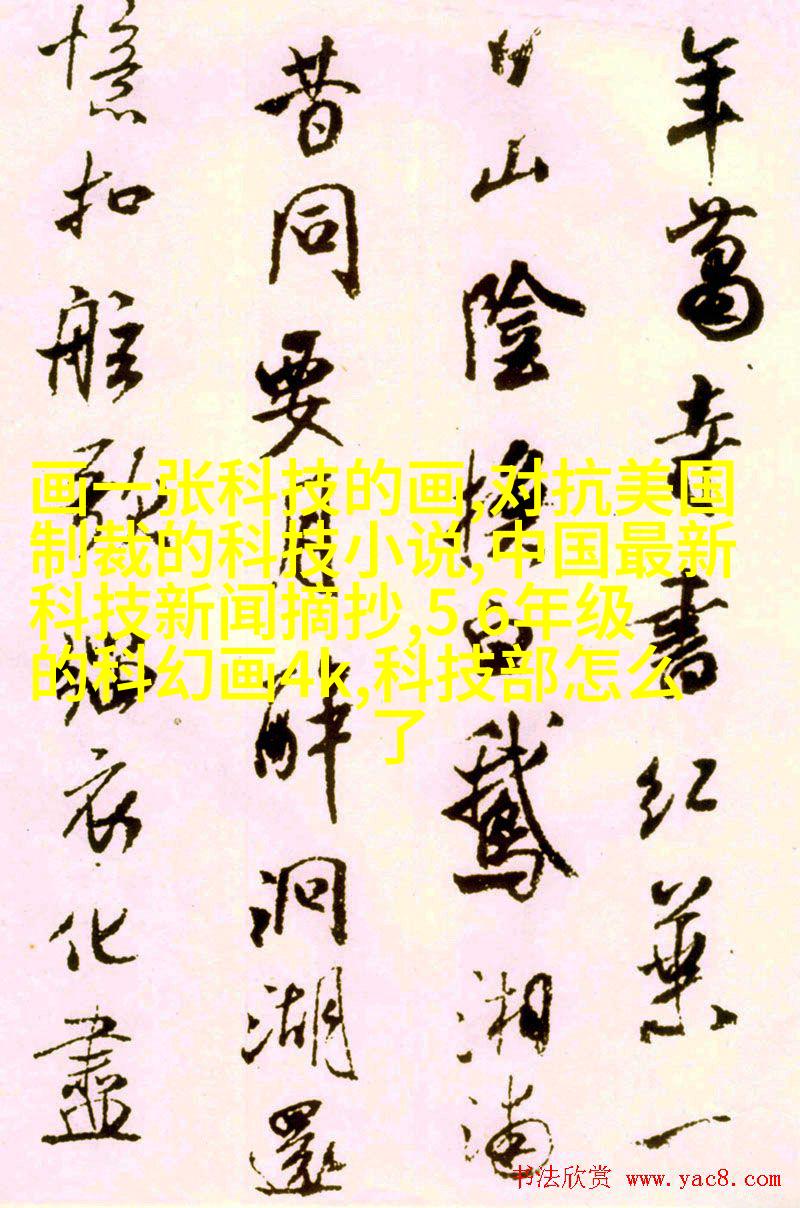 年蕭寺書紅葉一
日山陰換白鵝湘浦
昔同要月醉洞湖還
憶扣舷歌緇衣化盡
画一张科技的画,对抗美国
制裁的科技小说,中国最新
科技新闻摘抄,5.6年级
的科幻画4k,科技部怎么
了
书法欣赏 www.yac8.com